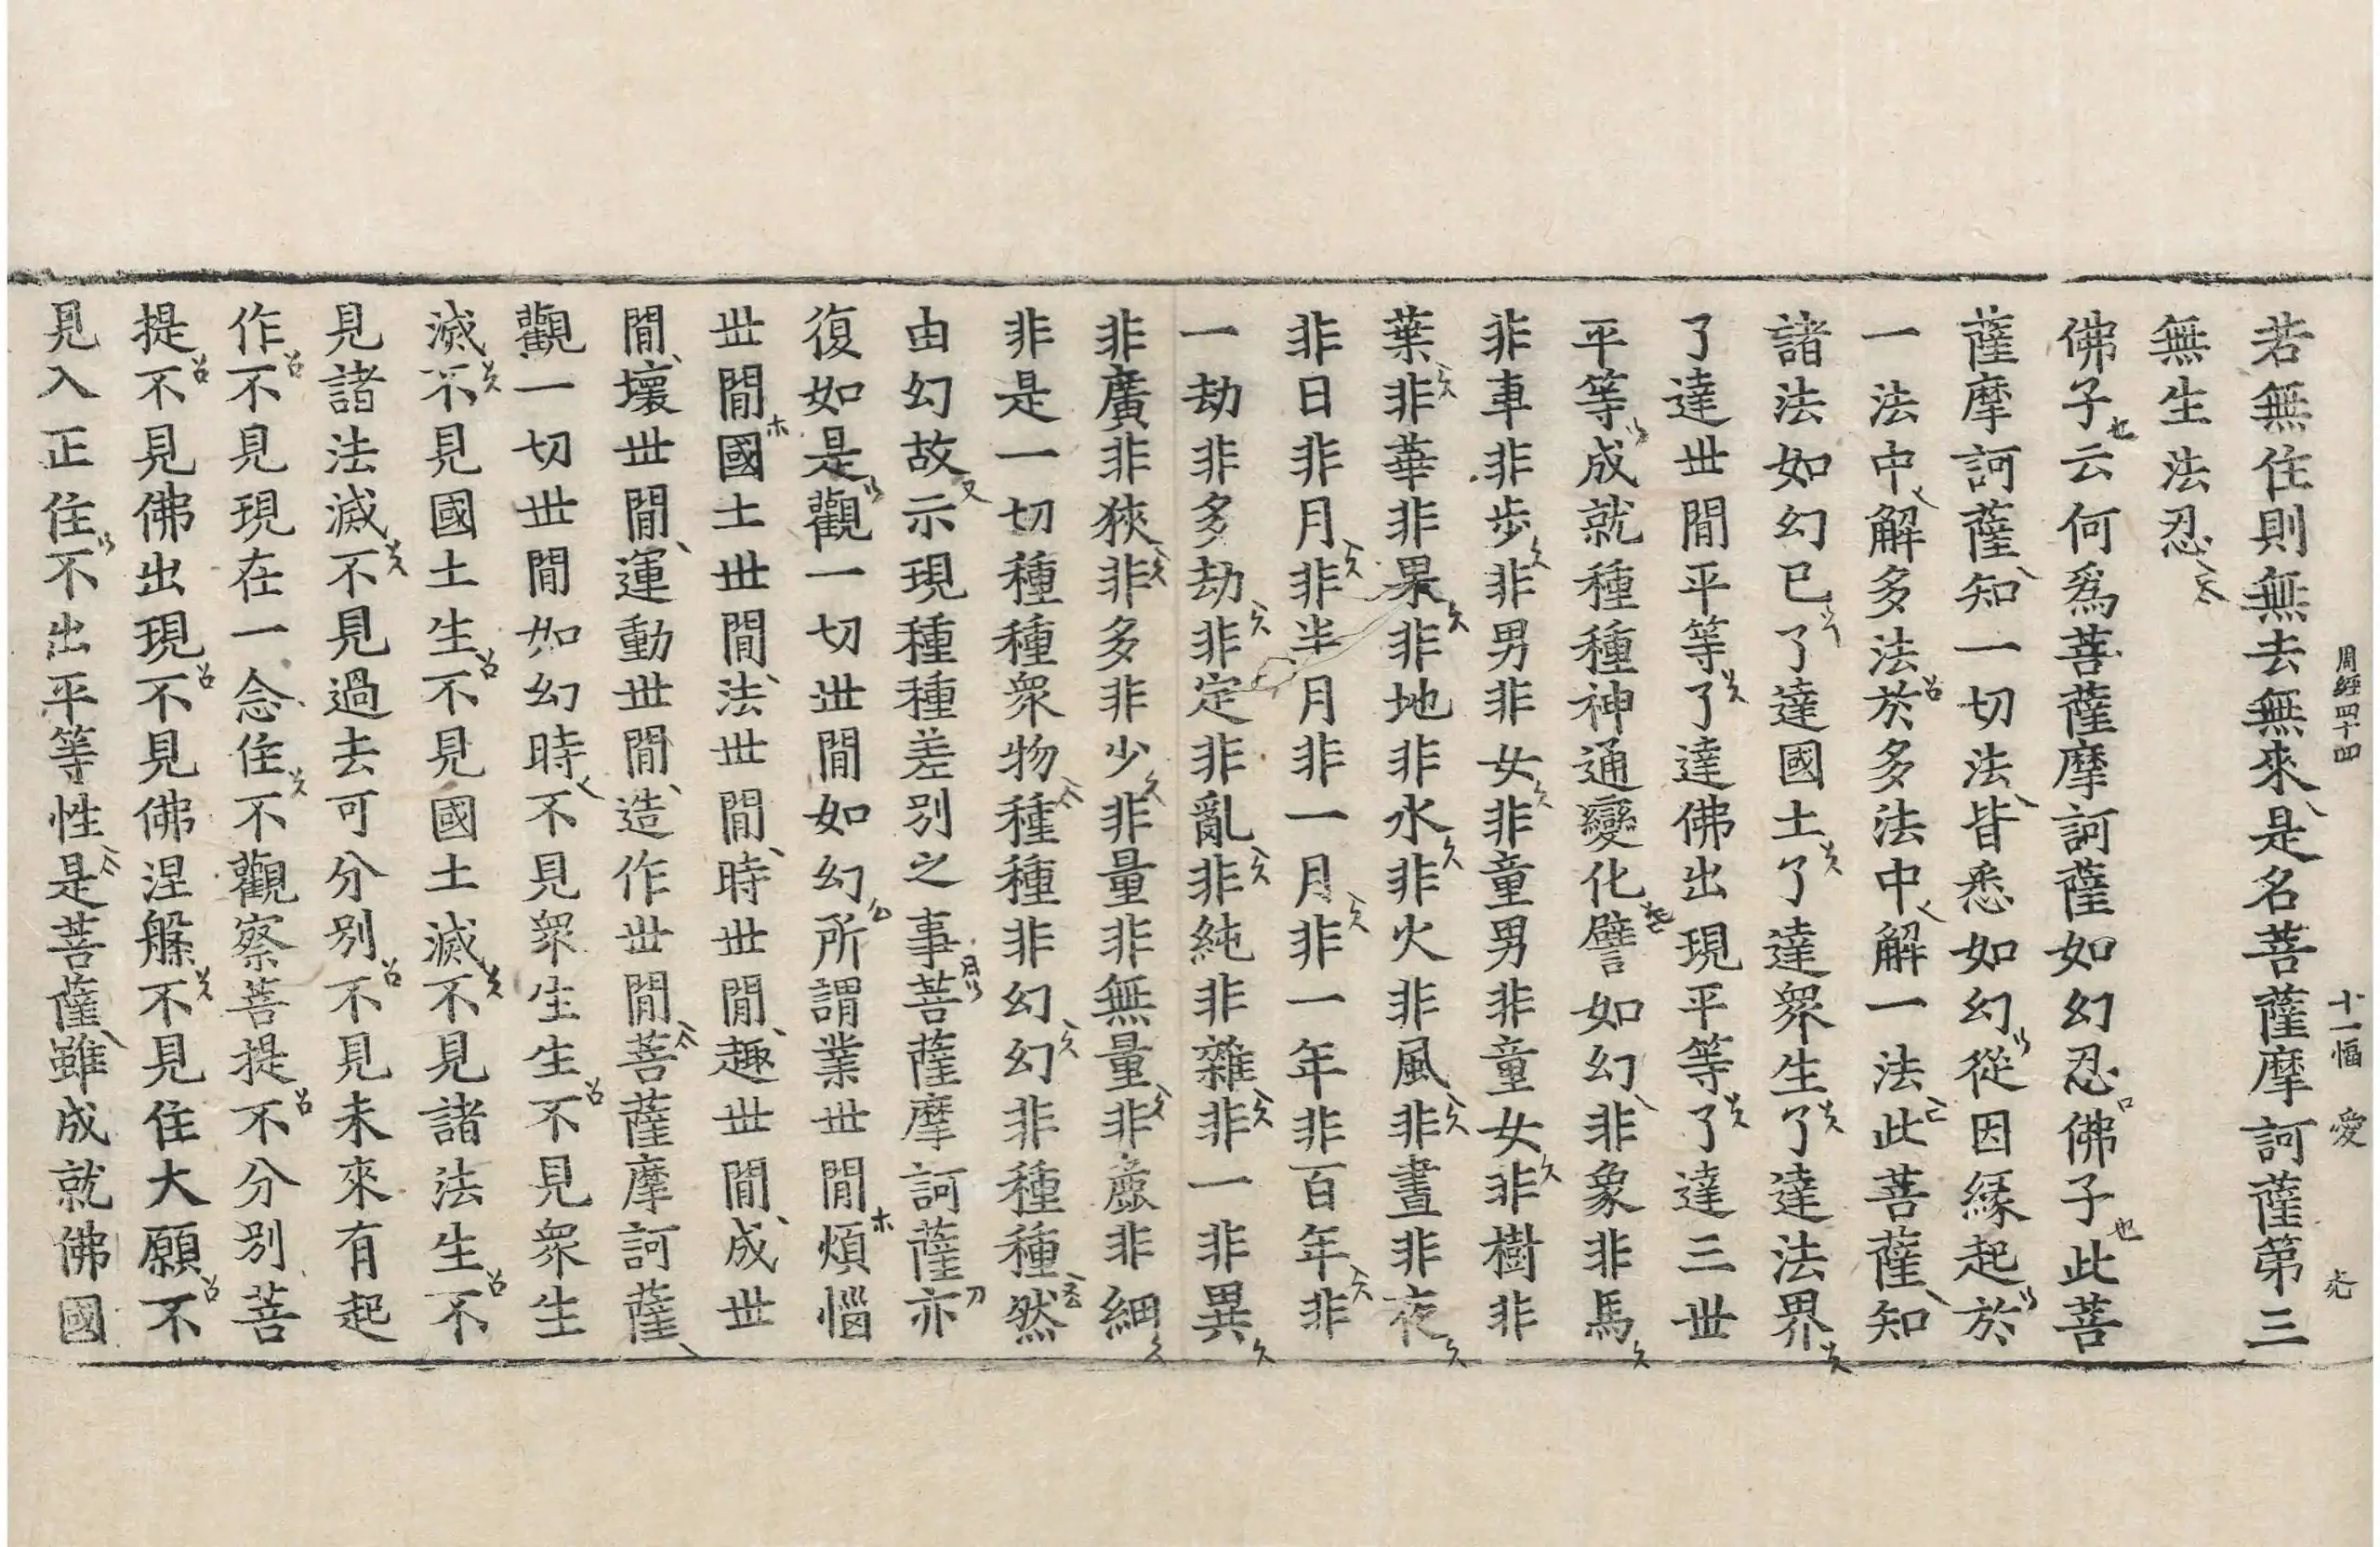 周經四十四 十一幅 愛
若無住則無去無來是名菩薩摩訶薩第三
無生法忍
佛子云何爲菩薩摩訶薩如幻忍佛子此菩
薩摩訶薩知一切法皆悉如幻從因緣起於
一法中解多法於多法中解一法此菩薩知
諸法如幻已了達國土了達眾生了達法界
了達世間平等了達佛出現平等了達三世
平等成就種種神通變化譬如幻非象非馬
非車非步非男非女非童男非童女非樹非
葉非華非果非地非水非火非風非晝非夜
非日非月非半月非一月非一年非百年非
一劫非多劫非定非亂非純非雜非一非異
非廣非狹非多非少非量非無量非麁非細
非是一切種種眾物種種非幻幻非種種然
由幻故示現種種差別之事菩薩摩訶薩亦
復如是觀一切世間如幻所謂業世間煩惱
世間國土世間法世間時世間趣世間成世
間壞世間運動世間造作世間菩薩摩訶薩
觀一切世間如幻時不見眾生生不見眾生
滅不見國土生不見國土滅不見諸法生不
見諸法滅不見過去可分別不見未來有起
作不見現在一念住不觀察菩提不分別菩
提不見佛出現不見佛涅槃不見住大願不
見入正住不出平等性是菩薩雖成就佛國